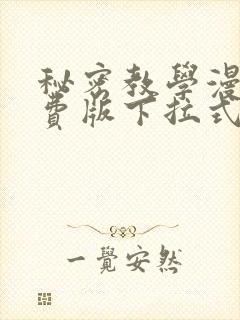 秘密教學漫
費版下拉式
一覺安然